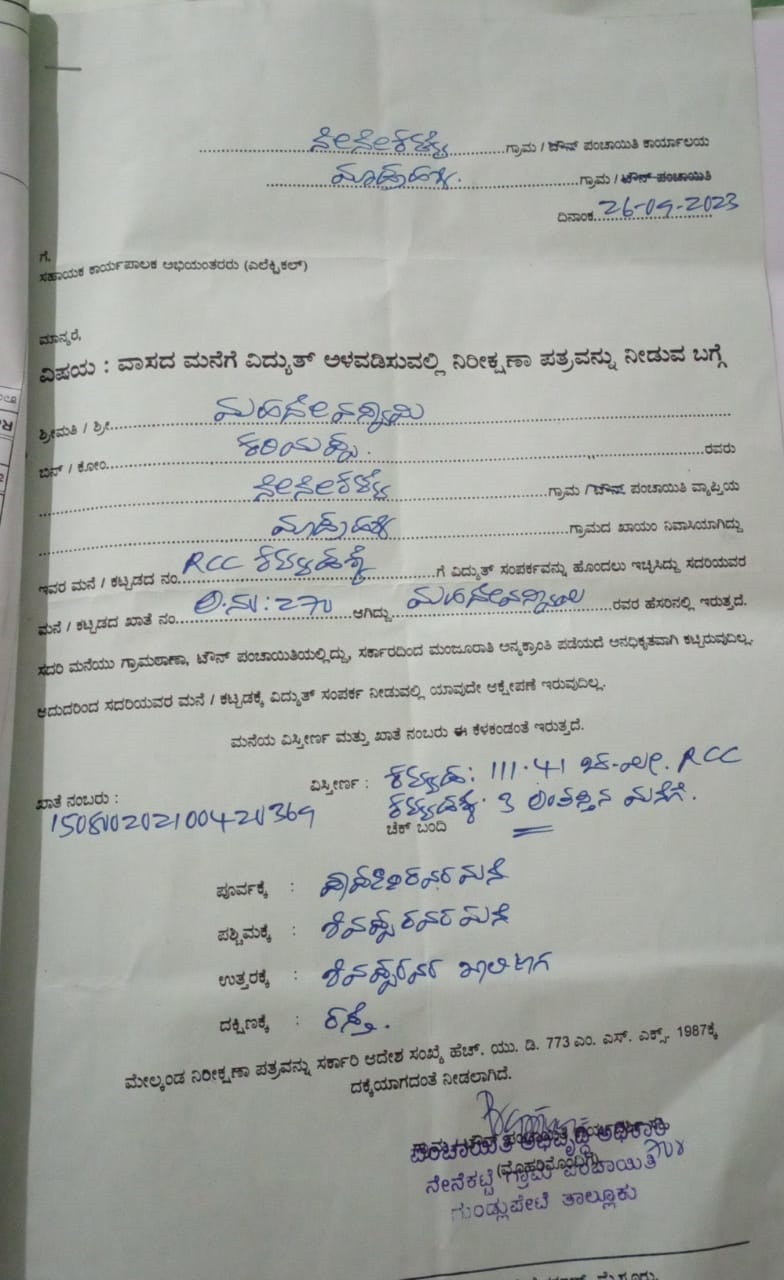 ನೇನೇಕಟ್ಟೆ ಗ್ರಾಮ / ಟೌನ್ ಪಂಚಾಯಿತಿ ಕಾರ್ಯಾಲಯ
ಗ್ರಾಮ / ಟೌನ್ ಪಂಚಾಯಿತಿ
ದಿನಾಂಕ 26-09-2023
ಗೆ,
ಸಹಾಯಕ ಕಾರ್ಯಪಾಲಕ ಅಭಿಯಂತರರು (ಎಲೆಕ್ಟ್ರಿಕಲ್)
ಮಾನ್ಯರೆ,
ವಿಷಯ : ವಾಸದ ಮನೆಗೆ ವಿದ್ಯುತ್ ಅಳವಡಿಸುವಲ್ಲಿ ನಿರೀಕ್ಷಣಾ ಪತ್ರವನ್ನು ನೀಡುವ ಬಗ್ಗೆ
ಶ್ರೀಮತಿ / ಶ್ರೀ ಮಹದೇವಸ್ವಾಮಿ
ಬಿನ್ / ಕೋಂ ಕರಿಯಪ್ಪ. ರವರು
ನೇನೇಕಟ್ಟೆ ಗ್ರಾಮ / ಟೌನ್ ಪಂಚಾಯಿತಿ ವ್ಯಾಪ್ತಿಯ
ಗ್ರಾಮದ ಖಾಯಂ ನಿವಾಸಿಯಾಗಿದ್ದು
ಇವರ ಮನೆ / ಕಟ್ಟಡದ ನಂ. RCC ಗೆ ವಿದ್ಯುತ್ ಸಂಪರ್ಕವನ್ನು ಹೊಂದಲು ಇಚ್ಛಿಸಿದ್ದು ಸದರಿಯವರ
ಮನೆ / ಕಟ್ಟಡದ ಖಾತೆ ನಂ. ಆಗಿದ್ದು ರವರ ಹೆಸರಿನಲ್ಲಿ ಇರುತ್ತದೆ.
ಸದರಿ ಮನೆಯು ಗ್ರಾಮಠಾಣಾ, ಟೌನ್ ಪಂಚಾಯಿತಿಯಲ್ಲಿದ್ದು, ಸರ್ಕಾರದಿಂದ ಮಂಜೂರಾತಿ ಅನ್ಯಕ್ರಾಂತಿ ಪಡೆಯದೆ ಅನಧಿಕೃತವಾಗಿ ಕಟ್ಟಿರುವುದಿಲ್ಲ.
ಆದುದರಿಂದ ಸದರಿಯವರ ಮನೆ / ಕಟ್ಟಡಕ್ಕೆ ವಿದ್ಯುತ್ ಸಂಪರ್ಕ ನೀಡುವಲ್ಲಿ ಯಾವುದೇ ಆಕ್ಷೇಪಣೆ ಇರುವುದಿಲ್ಲ.
ಮನೆಯ ವಿಸ್ತೀರ್ಣ ಮತ್ತು ಖಾತೆ ನಂಬರು ಈ ಕೆಳಕಂಡಂತೆ ಇರುತ್ತದೆ.
ವಿಸ್ತೀರ್ಣ : 111.41 RCC
ಖಾತೆ ನಂಬರು :
ಮನೆಗೆ.
ಚೆಕ್ ಬಂದಿ
ಪೂರ್ವಕ್ಕೆ : ಮನೆ
ಪಶ್ಚಿಮಕ್ಕೆ : ಶಿವಪ್ಪರವರ ಮನೆ
ಉತ್ತರಕ್ಕೆ : ಶಿವಪ್ಪರವರ ಖಾಲಿ ಜಾಗ
ದಕ್ಷಿಣಕ್ಕೆ : ರಸ್ತೆ.
ಮೇಲ್ಕಂಡ ನಿರೀಕ್ಷಣಾ ಪತ್ರವನ್ನು ಸರ್ಕಾರಿ ಆದೇಶ ಸಂಖ್ಯೆ ಹೆಚ್. ಯು. ಡಿ. 773 ಎಂ. ಎಸ್. ಎಕ್ಸ್. 1987ಕ್ಕೆ
ದಕ್ಕೆಯಾಗದಂತೆ ನೀಡಲಾಗಿದೆ.
ಪಂಚಾಯಿತಿ ಅಭಿವೃದ್ಧಿ ಅಧಿಕಾರಿ
(ಮೊಹರಿನೊಂದಿಗೆ)
ನೇನೆಕಟ್ಟೆ ಗ್ರಾಮ ಪಂಚಾಯಿತಿ
ಗುಂಡ್ಲುಪೇಟೆ ತಾಲ್ಲೂಕು